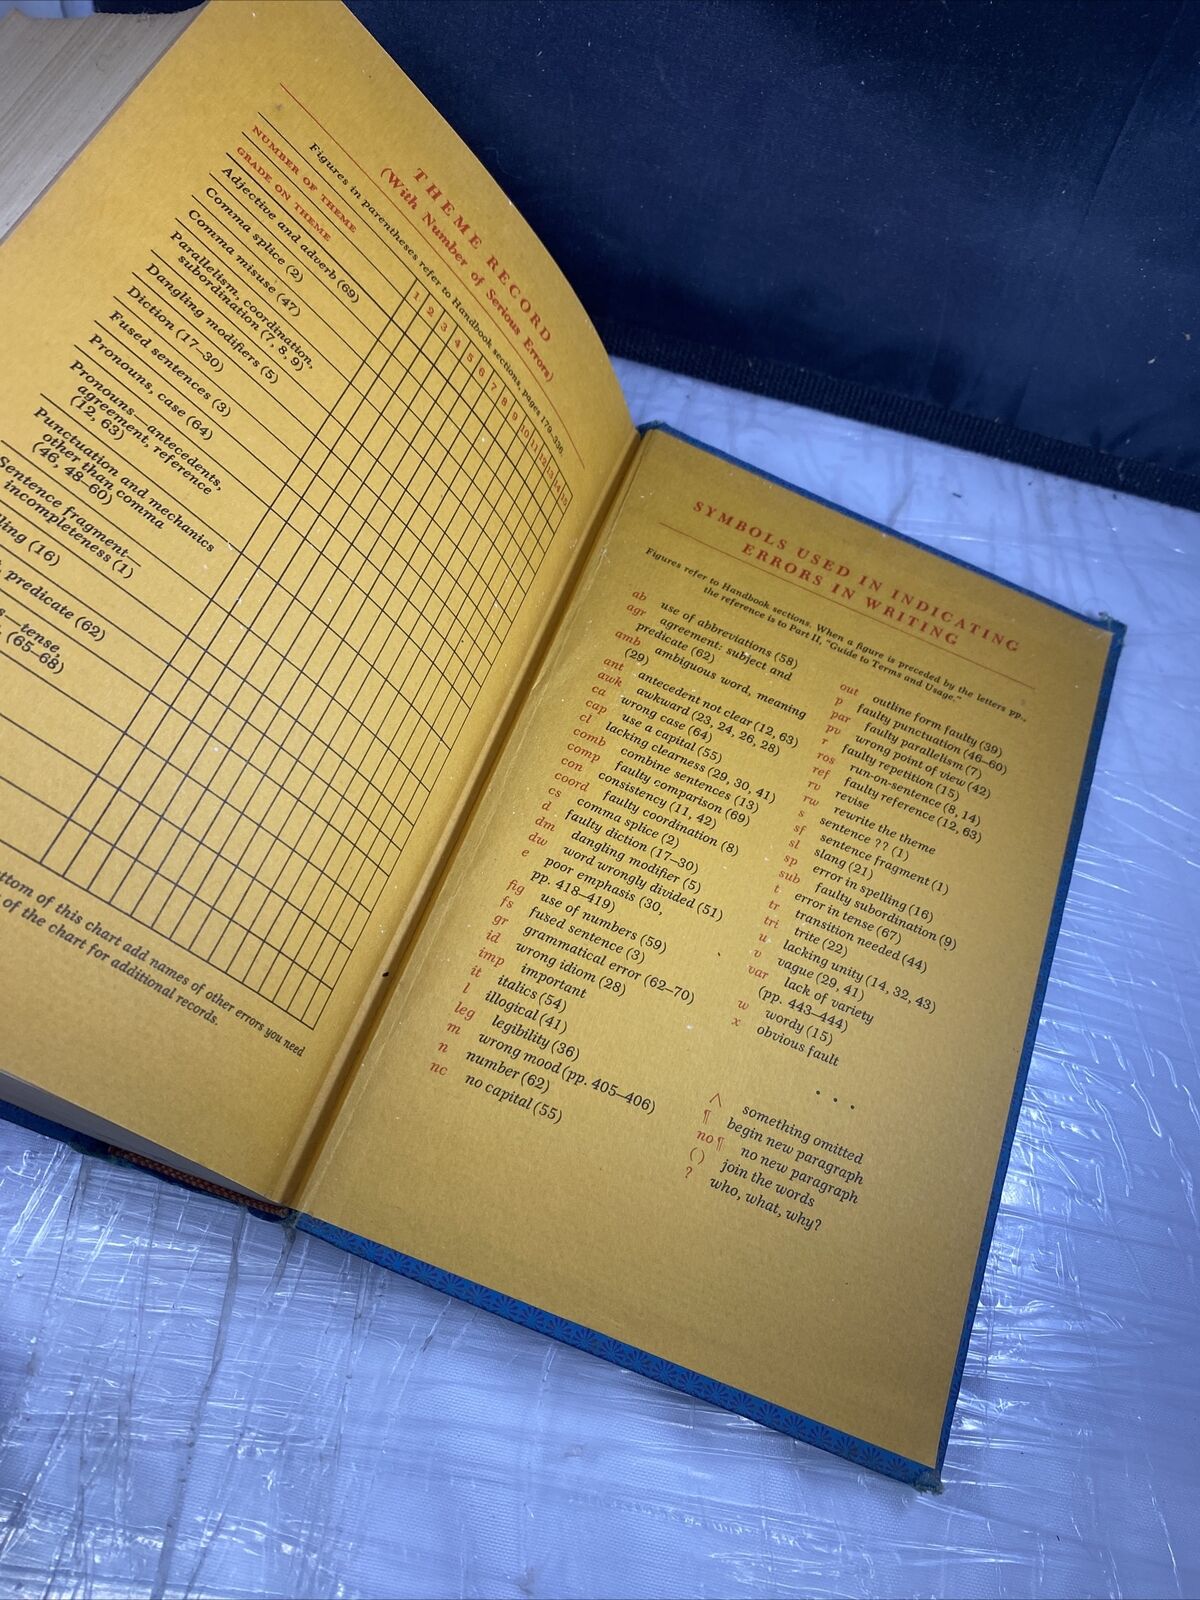 THEME RECORD
(With Number of Serious Errors)
Figures in parentheses refer to Handbook sections, pages 179–336.
NUMBER OF THEME 1 2 3 4 5 6 7 8 9 10 11 12 13 14 15
GRADE ON THEME
Adjective and adverb (69)
Comma splice (2)
Comma misuse (47)
Parallelism, coordination,
subordination (7, 8, 9)
Dangling modifiers (5)
Diction (17–30)
Fused sentences (3)
Pronouns, case (64)
Pronouns—antecedents,
agreement, reference
(12, 63)
Punctuation and mechanics
other than comma
(46, 48–60)
Sentence fragment—
incompleteness (1)
ling (16)
predicate (62)
tense,
(65–68)
ottom of this chart add names of other errors you need
of the chart for additional records.
SYMBOLS USED IN INDICATING
ERRORS IN WRITING
Figures refer to Handbook sections. When a figure is preceded by the letters pp.,
the reference is to Part II, "Guide to Terms and Usage."
ab use of abbreviations (58)
agr agreement: subject and
predicate (62)
amb ambiguous word, meaning
(29)
ant antecedent not clear (12, 63)
awk awkward (23, 24, 26, 28)
ca wrong case (64)
cap use a capital (55)
cl lacking clearness (29, 30, 41)
comb combine sentences (13)
comp faulty comparison (69)
con consistency (11, 42)
coord faulty coordination (8)
cs comma splice (2)
d faulty diction (17–30)
dm dangling modifier (5)
dw word wrongly divided (51)
e poor emphasis (30,
pp. 418–419)
fig use of numbers (59)
fs fused sentence (3)
gr grammatical error (62–70)
id wrong idiom (28)
imp important
it italics (54)
l illogical (41)
leg legibility (36)
m wrong mood (pp. 405–406)
n number (62)
nc no capital (55)
out outline form faulty (39)
p faulty punctuation (46–60)
par faulty parallelism (7)
pv wrong point of view (42)
r faulty repetition (15)
ros run-on-sentence (8, 14)
ref faulty reference (12, 63)
rv revise
rw rewrite the theme
s sentence ?? (1)
sf sentence fragment (1)
sl slang (21)
sp error in spelling (16)
sub faulty subordination (9)
t error in tense (67)
tr transition needed (44)
tri trite (22)
u lacking unity (14, 32, 43)
v vague (29, 41)
var lack of variety
(pp. 443–444)
w wordy (15)
x obvious fault
. . .
^ something omitted
¶ begin new paragraph
no ¶ no new paragraph
( ) join the words
? who, what, why?